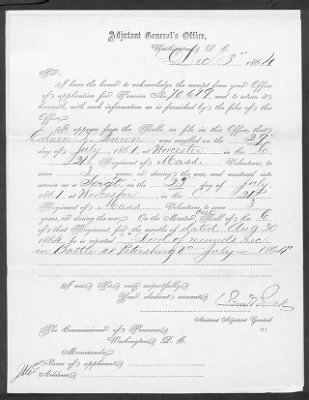 Adjutant General's Office,
Washington, D. C.
Dec 3d 1864
Sir:
I have the honor to acknowledge the receipt from your Office
of application for Pension No. and to return it
herewith with such information as is furnished by the files of this
Office.
It appears from the Rolls on file in this Office, that
was enrolled on the
day of July, 1861, at Worcester in Co. G
21 Regiment of Mass. Volunteers, to
serve 3 years, or during the war, and mustered into
service as a Sergt on the 23 day of July,
1861, at Worcester, in Co. 21st
Regiment of Mass Volunteers, to serve 3
years, or during the war. On the Muster Roll of Co. G
of that Regiment, for the months of dated Aug 20
1864, he is reported "Died of wounds rec'd
in Battle at Petersburg Va July 1864"
I am, Sir, very respectfully,
Your obedient servant,
Assistant Adjutant General.
The Commissioner of Pensions,
Washington, D. C.
Memoranda:
Name of applicant,
Address,